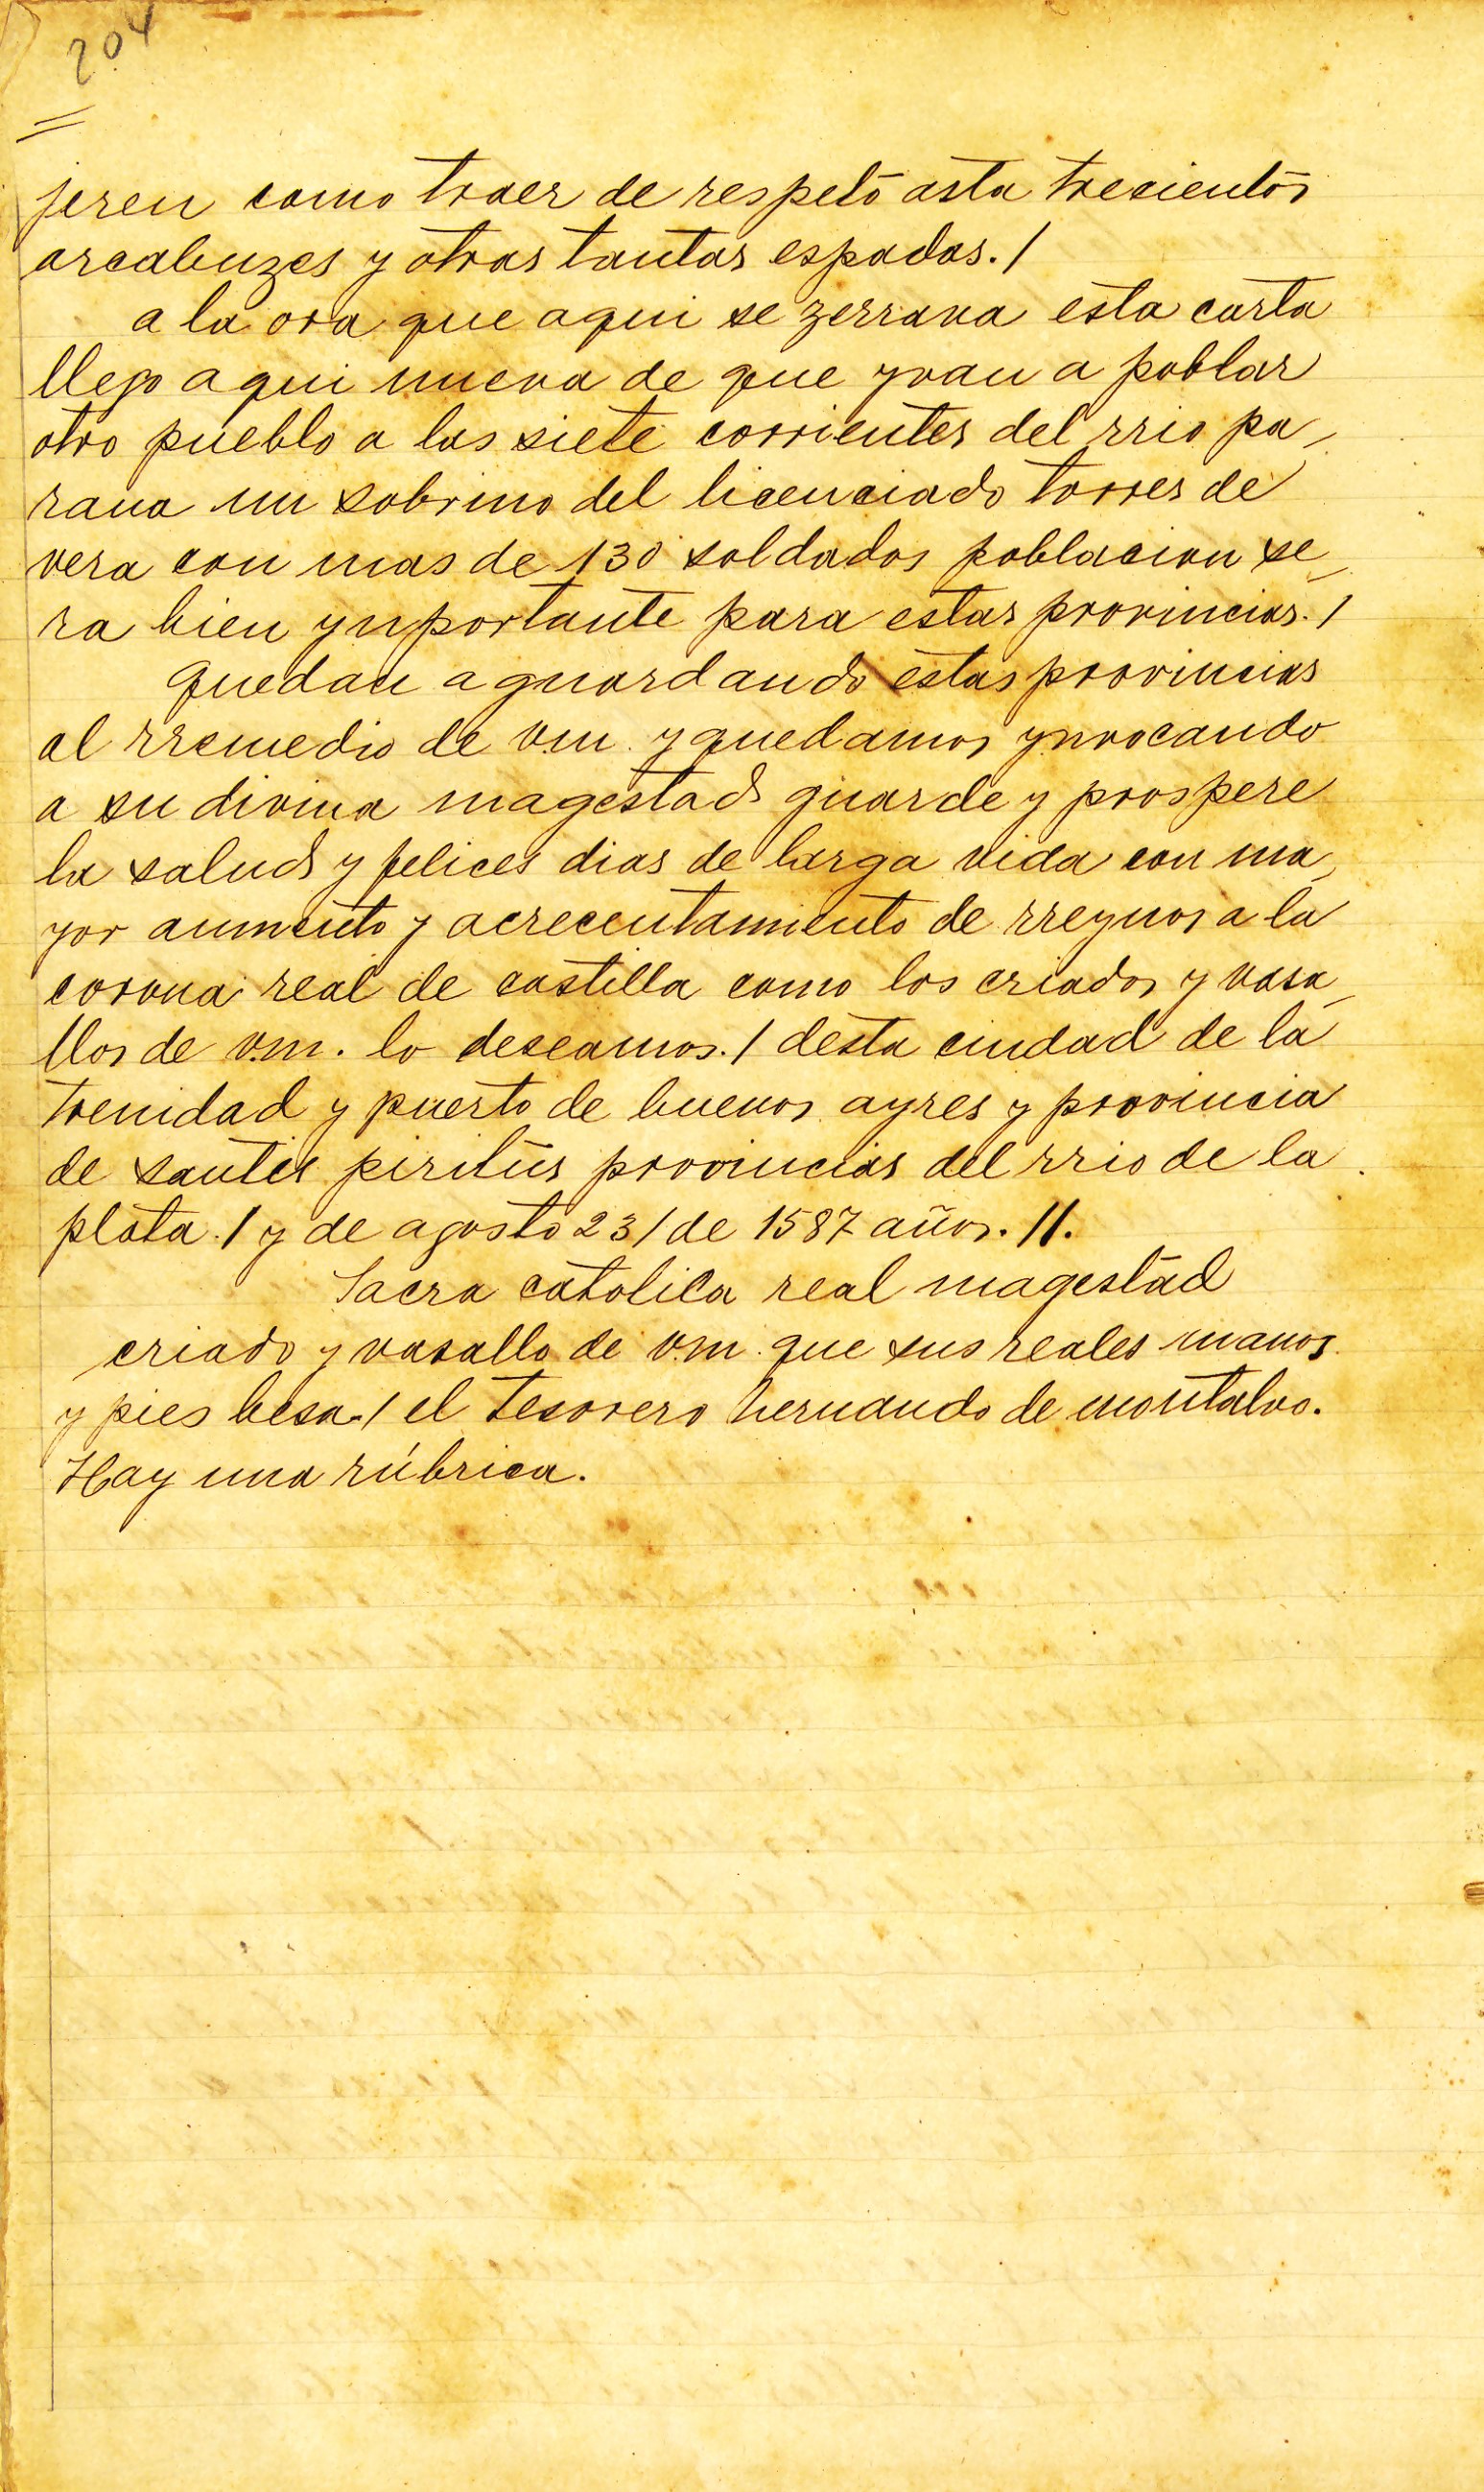 204
jeren como traer de respeto asta trecientos
arcabuzes y otras tantas espadas. /
a la ora que aqui se zerrava esta carta
llego aqui nueva de que yvan a poblar
otro pueblo a las siete corrientes del rrio pa-
rana un sobrino del licenciado torres de
vera con mas de 130 soldados poblacion se-
ra bien ynportante para estas provincias. /
quedan aguardando estas provincias
al rremedio de v.m. y quedamos ynvocando
a su divina magestad guarde y prospere
la salud y felices dias de larga vida con ma-
yor aumento y acrecentamiento de rreynos a la
corona real de castilla como los criados y vasa-
llos de v.m. lo deseamos. / desta ciudad de la
trenidad y puerto de buenos ayres y provincia
de santis piritus provincias del rrio de la
plata. / y de agosto 23 / de 1587 años. //.
Sacra catolica real magestad
criado y vasallo de v.m. que sus reales manos
y pies besa. / el tesorero hernando de montalvo.
Hay una rúbrica.